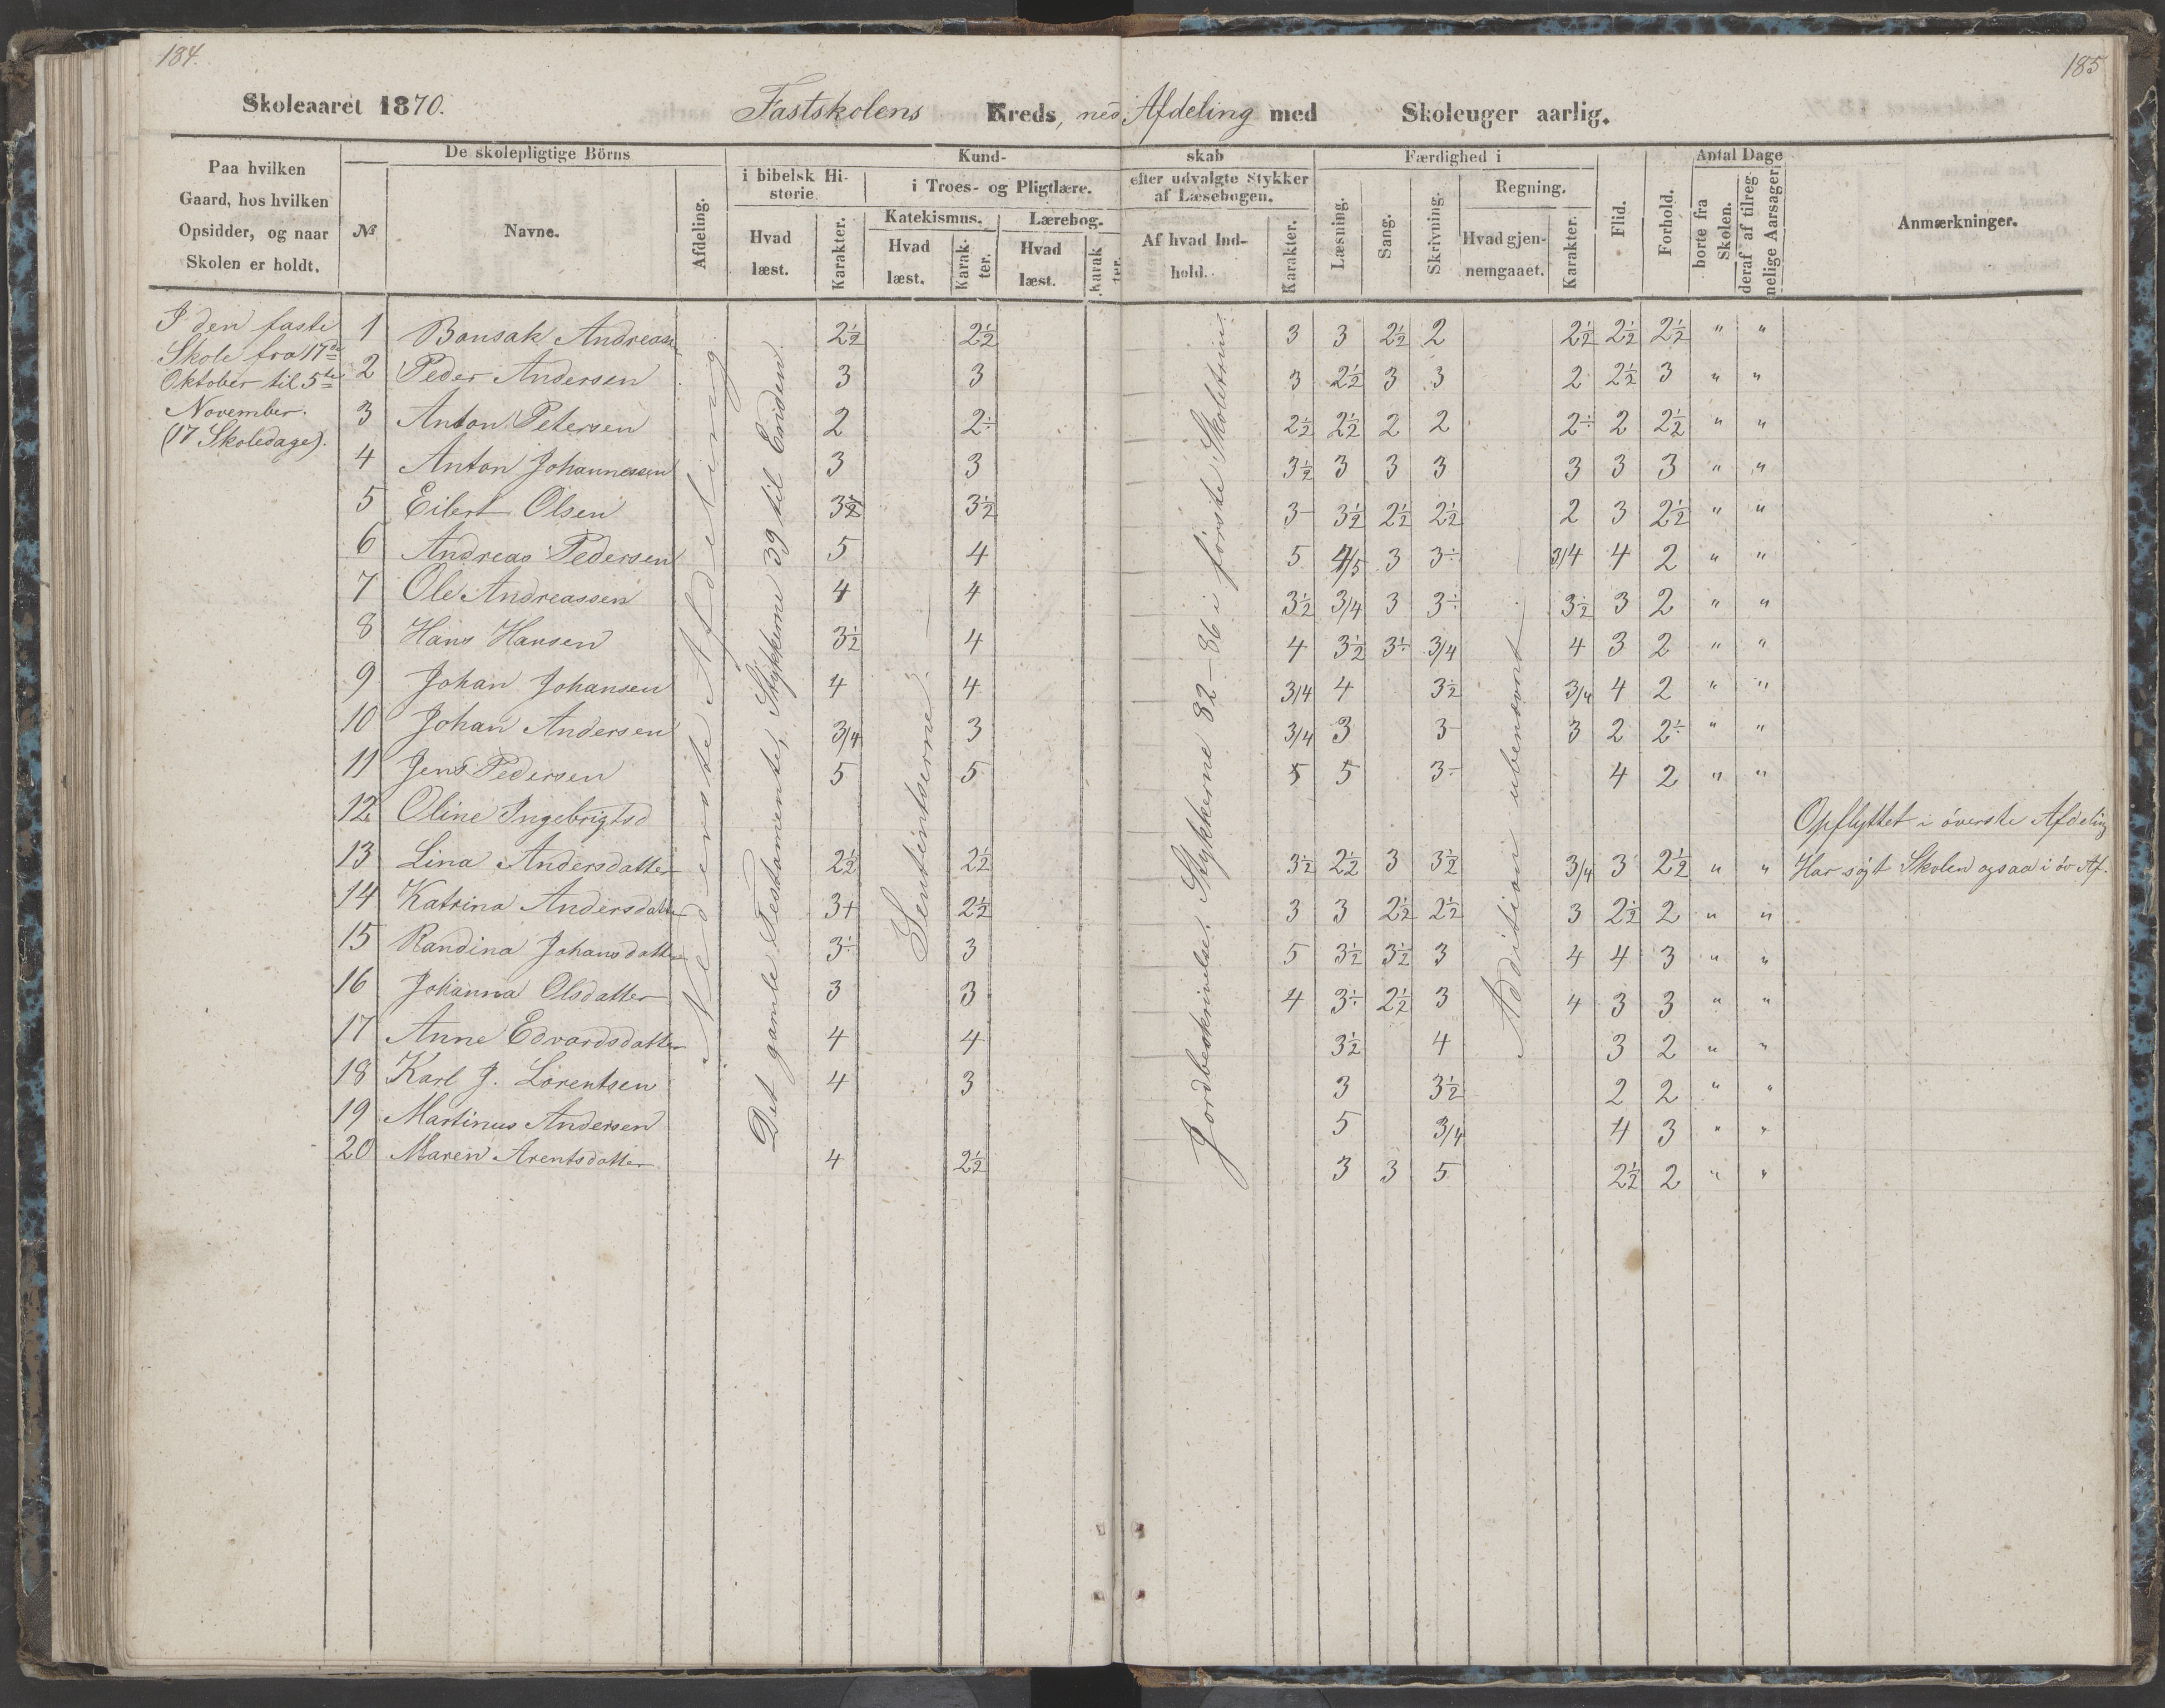 184.
185
Skoleaaret 1870. Fastskolens Kreds, ned Afdeling med Skoleuger aarlig.
Paa hvilken Gaard, hos hvilken Opsidder, og naar Skolen er holdt.
De skolepligtige Börns
№ Navne. Afdeling.
Kundskab
i bibelsk Historie
Hvad læst. Karakter.
i Troes- og Pligtlære.
Katekismus. Hvad læst. Karakter.
Lærebog. Hvad læst. Karakter.
efter udvalgte Stykker af Læsebogen.
Af hvad Indhold. Karakter.
Færdighed i
Læsning. Sang. Skrivning.
Regning. Hvad gjennemgaaet. Karakter.
Flid. Forhold.
Antal Dage
borte fra Skolen. deraf af tilregnelige Aarsager.
Anmærkninger.
I den faste
Skole fra 17de
Oktober til 5te
November.
(17 Skoledage).
Nederste Afdeling
Det gamle Testamente, Stykkerne 39 til Enden.
Sentintserne.
Jordbeskrivelse. Stykkerne 82-86 i förste Skoletrin.
Addition ubenævnt
1 Bonsak Andreass 2½ 2½ 3 3 2½ 2 2½ 2½ 2½ " "
2 Peder Andersen 3 3 3 2½ 3 3 2 2½ 3 " "
3 Anton Petersen 2 2÷ 2½ 2½ 2 2 2÷ 2 2½ " "
4 Anton Johannessen 3 3 3½ 3 3 3 3 3 3 " "
5 Eilert Olsen 3½ 3½ 3- 3½ 2½ 2½ 2 3 2½ " "
6 Andreas Pedersen 5 4 5 4/5 3 3÷ 3/4 4 2 " "
7 Ole Andreassen 4 4 3½ 3/4 3 3÷ 3½ 3 2 " "
8 Hans Hansen 3½ 4 4 3½ 3÷ 3/4 4 3 2 " "
9 Johan Johansen 4 4 3/4 4 3½ 3/4 4 2 " "
10 Johan Andersen 3/4 3 3/4 3 3- 3 2 2÷ " "
11 Jens Pedersen 5 5 5 5 3÷ 4 2 " "
12 Oline Ingebrigtsd Opflyttet i överste Afdeling
13 Lina Andersdatter 2½ 2½ 3½ 2½ 3 3½ 3/4 3 2½ " " Har sögt Skolen ogsaa i öv Af.
14 Katrina Andersdatter 3+ 2½ 3 3 2½ 2½ 3 2½ 2 " "
15 Randina Johansdatter 3÷ 3 5 3½ 3½ 3 4 4 3 " "
16 Johanna Olsdatter 3 3 4 3÷ 2½ 3 4 3 3 " "
17 Anne Edvardsdatter 4 4 3½ 4 3 2 " "
18 Karl J. Lorentsen 4 3 3 3½ 2 2 " "
19 Martinus Andersen 5 3/4 4 3 " "
20 Maren Arentsdatter 4 2½ 3 3 5 2½ 2 " "